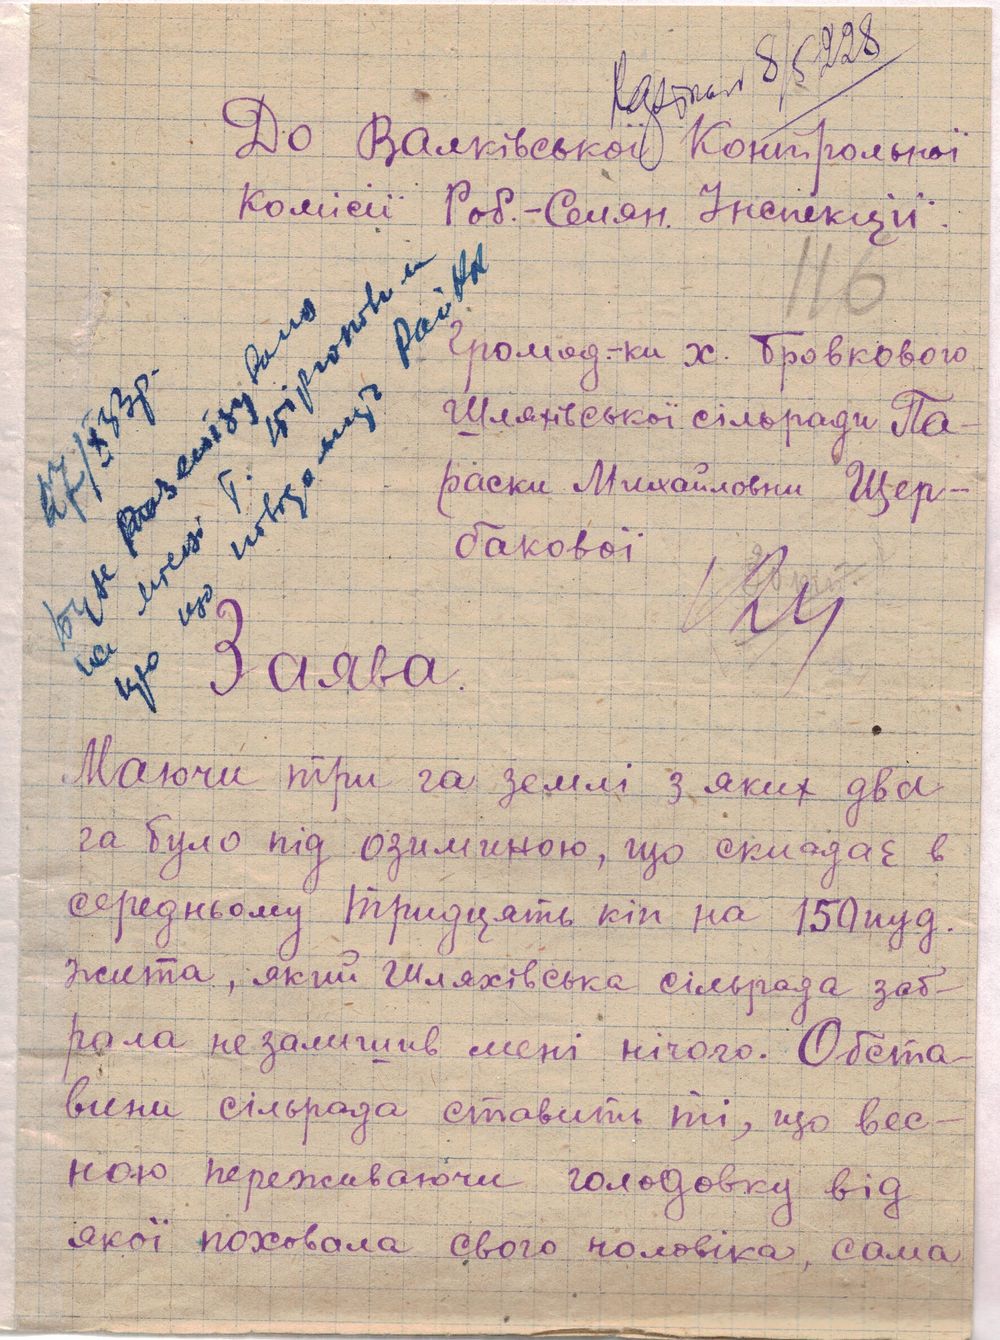 8/5 228
До Валківської Контрольної
Комісії Роб.-Селян. Інспекції.
116
Громад-ки х. Бровкового
Шляхівської сільради Па-
раски Михайловни Щер-
бакової
27/X 33р.
на місці Т.
що повідомить
Заява.
Маючи три га землі з яких два
га було під озиминою, що складає в
середньому тридцять кіп на 150 пуд.
жита, який Шляхівська сільрада заб-
рала незалишив мені нічого. Обста-
вини сільрада ставить ті, що вес-
ною переживаючи голодовку від
якої поховала свого чоловіка, сама